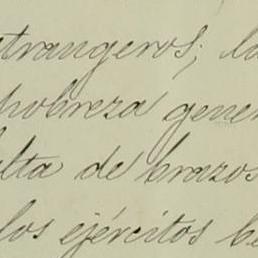 strangeros; la
pobreza gener
alta de brazos
los ejércitos be